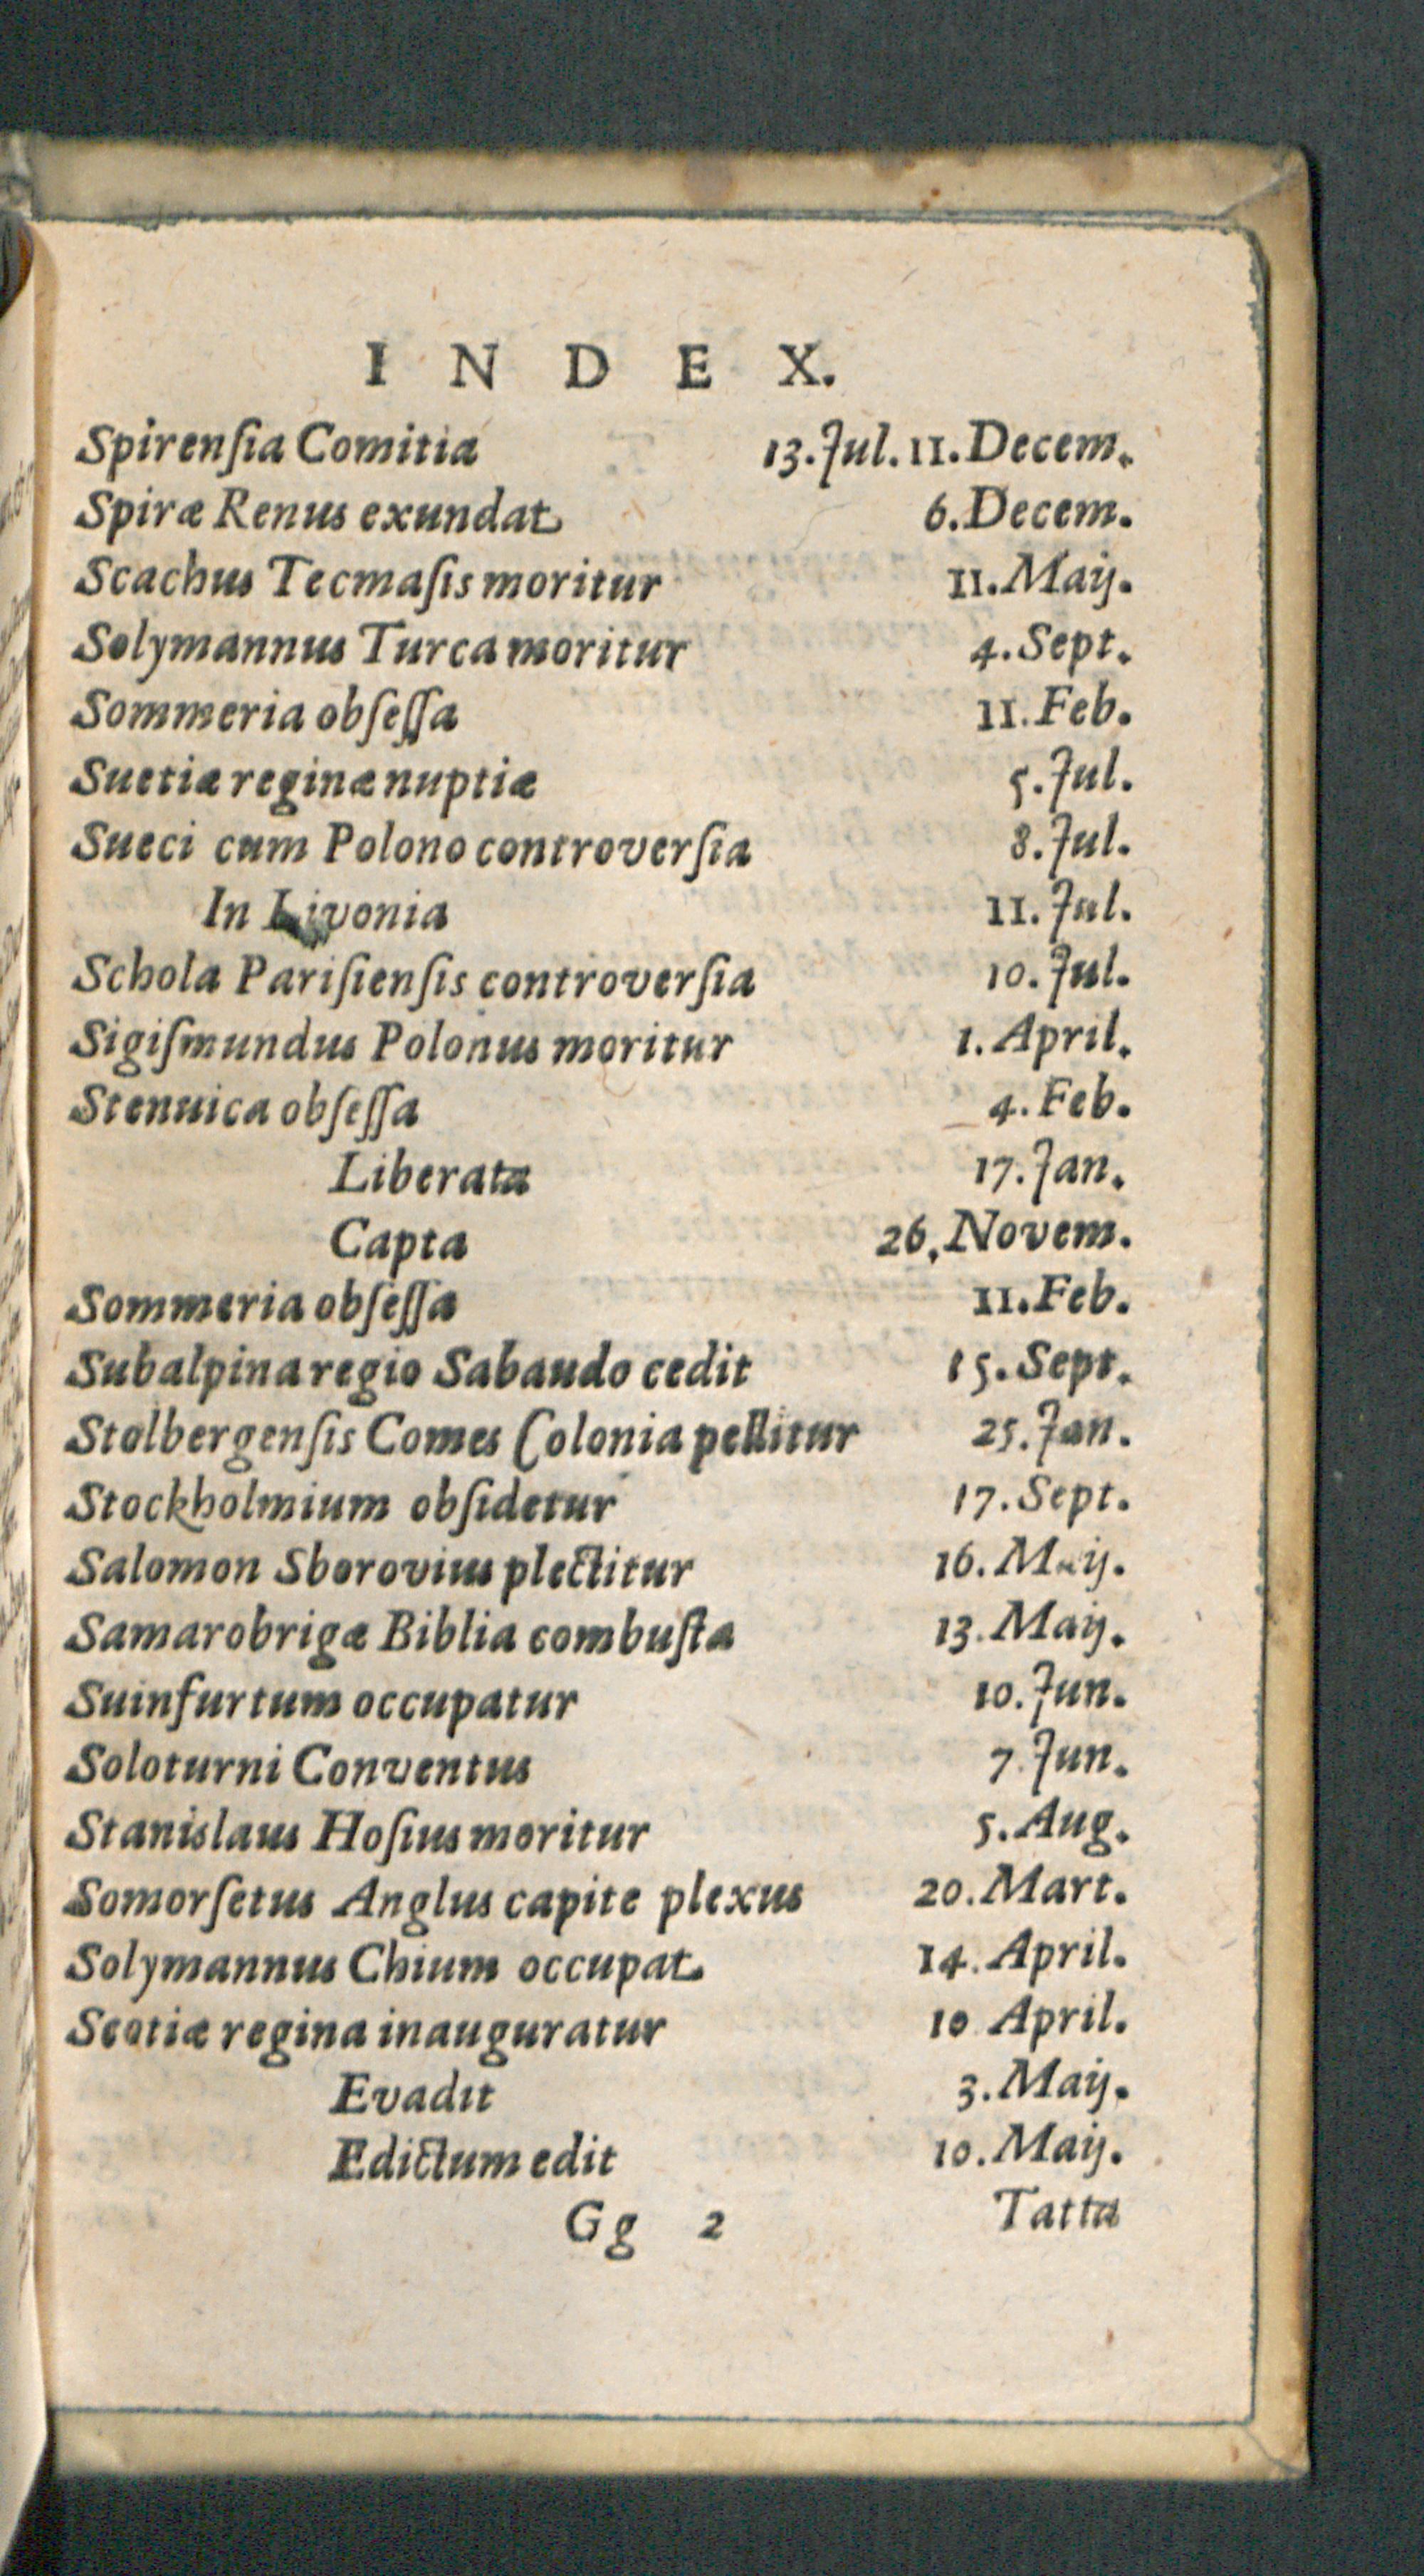 INDEX.
Spirenſia Comitia 13. Jul. 11. Decem.
Spiræ Renus exundat 6. Decem.
Scachus Tecmaſis moritur 11. Maij.
Solymannus Turca moritur 4. Sept.
Sommeria obſeſſa 11. Feb.
Suetiæ reginæ nuptiæ 5. Jul.
Sueci cum Polono controverſia 8. Jul.
In Livonia 11. Jul.
Schola Pariſienſis controverſia 10. Jul.
Sigiſmundus Polonus moritur 1. April.
Stenuica obſeſſa 4. Feb.
Liberata 17. Jan.
Capta 26, Novem.
Sommeria obſeſſa 11. Feb.
Subalpina regio Sabaudo cedit 15. Sept.
Stolbergenſis Comes Colonia pellitur 25. Jan.
Stockholmium obſidetur 17. Sept.
Salomon Sborovius plectitur 16. Maij.
Samarobrigæ Biblia combuſta 13. Maij.
Suinfurtum occupatur 10. Jun.
Soloturni Conventus 7. Jun.
Stanislaus Hoſius moritur 5. Aug.
Somorſetus Anglus capite plexus 20. Mart.
Solymannus Chium occupat 14. April.
Scotiæ regina inauguratur 10 April.
Evadit 3. Maij.
Edictum edit 10. Maij.
Gg 2 Tatta